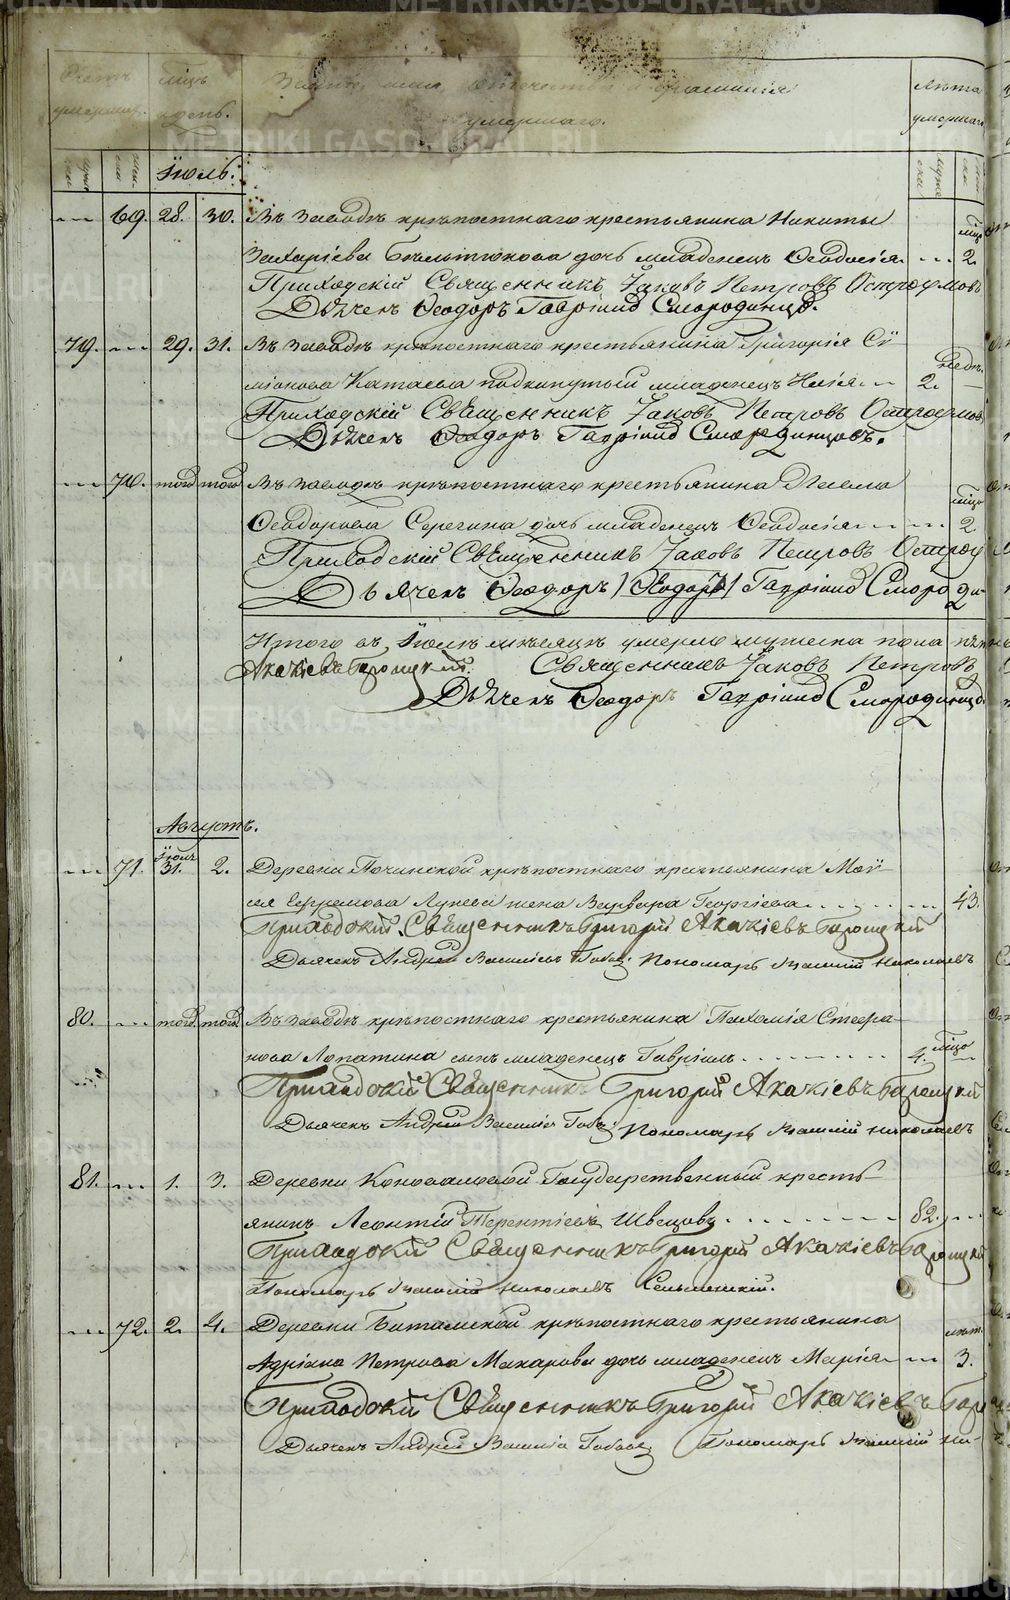 METRIKI.GASO-URAL.RU
Счетъ умершихъ. Мѣсяцъ день. Званіе, имя, отчество и фамилія умершаго. Лѣта умершаго
Іюль.
69. 28. 30. Въ Заводѣ крѣпостнаго крестьянина Никиты
Захаріева дочь младенецъ Ѳеодосія 2 мѣсяц
Приходскій Священникъ Іаковъ Петровъ Остроумовъ
Дьячек Ѳеодоръ Гавріилов Смородинцов.
79. 29. 31. Въ Заводѣ крѣпостнаго крестьянина Григорія Сѵ-
міонова Катаева подкинутый младенецъ Илія 2. недѣл.
Приходскій Священникъ Іаковъ Петровъ Остроумов
Дьячек Ѳеодоръ Гавріилов Смородинцовъ.
70. того того Въ Заводѣ крѣпостнаго крестьянина Павла
Ѳеодорова Серегина дочь младенецъ Ѳеодосія 2 мѣсяц
Приходскій Священникъ Іаковъ Петровъ Остроу
Дьячекъ Ѳеодоръ /Ѳеодоръ/ Гавріилов Смороди-
Итого въ Іюлѣ мѣсяцѣ умерло мужеска пола
Акакіевъ Священникъ Іаковъ Петровъ
Дьячекъ Ѳеодоръ Гавріилов Смородинцов
Августъ.
71. Іюля 31. 2. Деревни Починской крѣпостнаго крестьянина Мои-
сея Ефремова Лунева жена Варвара Георгіева 43.
Приходской Священникъ Григорій Акакіевъ
Дьячекъ Андрей Василіевъ Пономарь Николаевъ
80. того того Въ Заводѣ крѣпостнаго крестьянина Пахомія Стефа-
нова Лопатина сынъ младенецъ Гавріилъ 4. мѣсяц
Приходской Священникъ Григорій Акакіевъ
Дьячекъ Андрей Василіев Пономарь Николаевъ
81. 1. 3. Деревни Коноваловой Государственный кресть-
янинъ Леонтій Терентіевъ Швецовъ 82.
Приходской Священникъ Григорій Акакіевъ
Пономарь Николаевъ
72. 2. 4. Деревни Битимской крѣпостнаго крестьянина
Адріана Петрова Макарова дочь младенецъ Марія 3. лѣт.
Приходской Священникъ Григорій Акакіевъ
Дьячекъ Андрей Пономарь Ни-